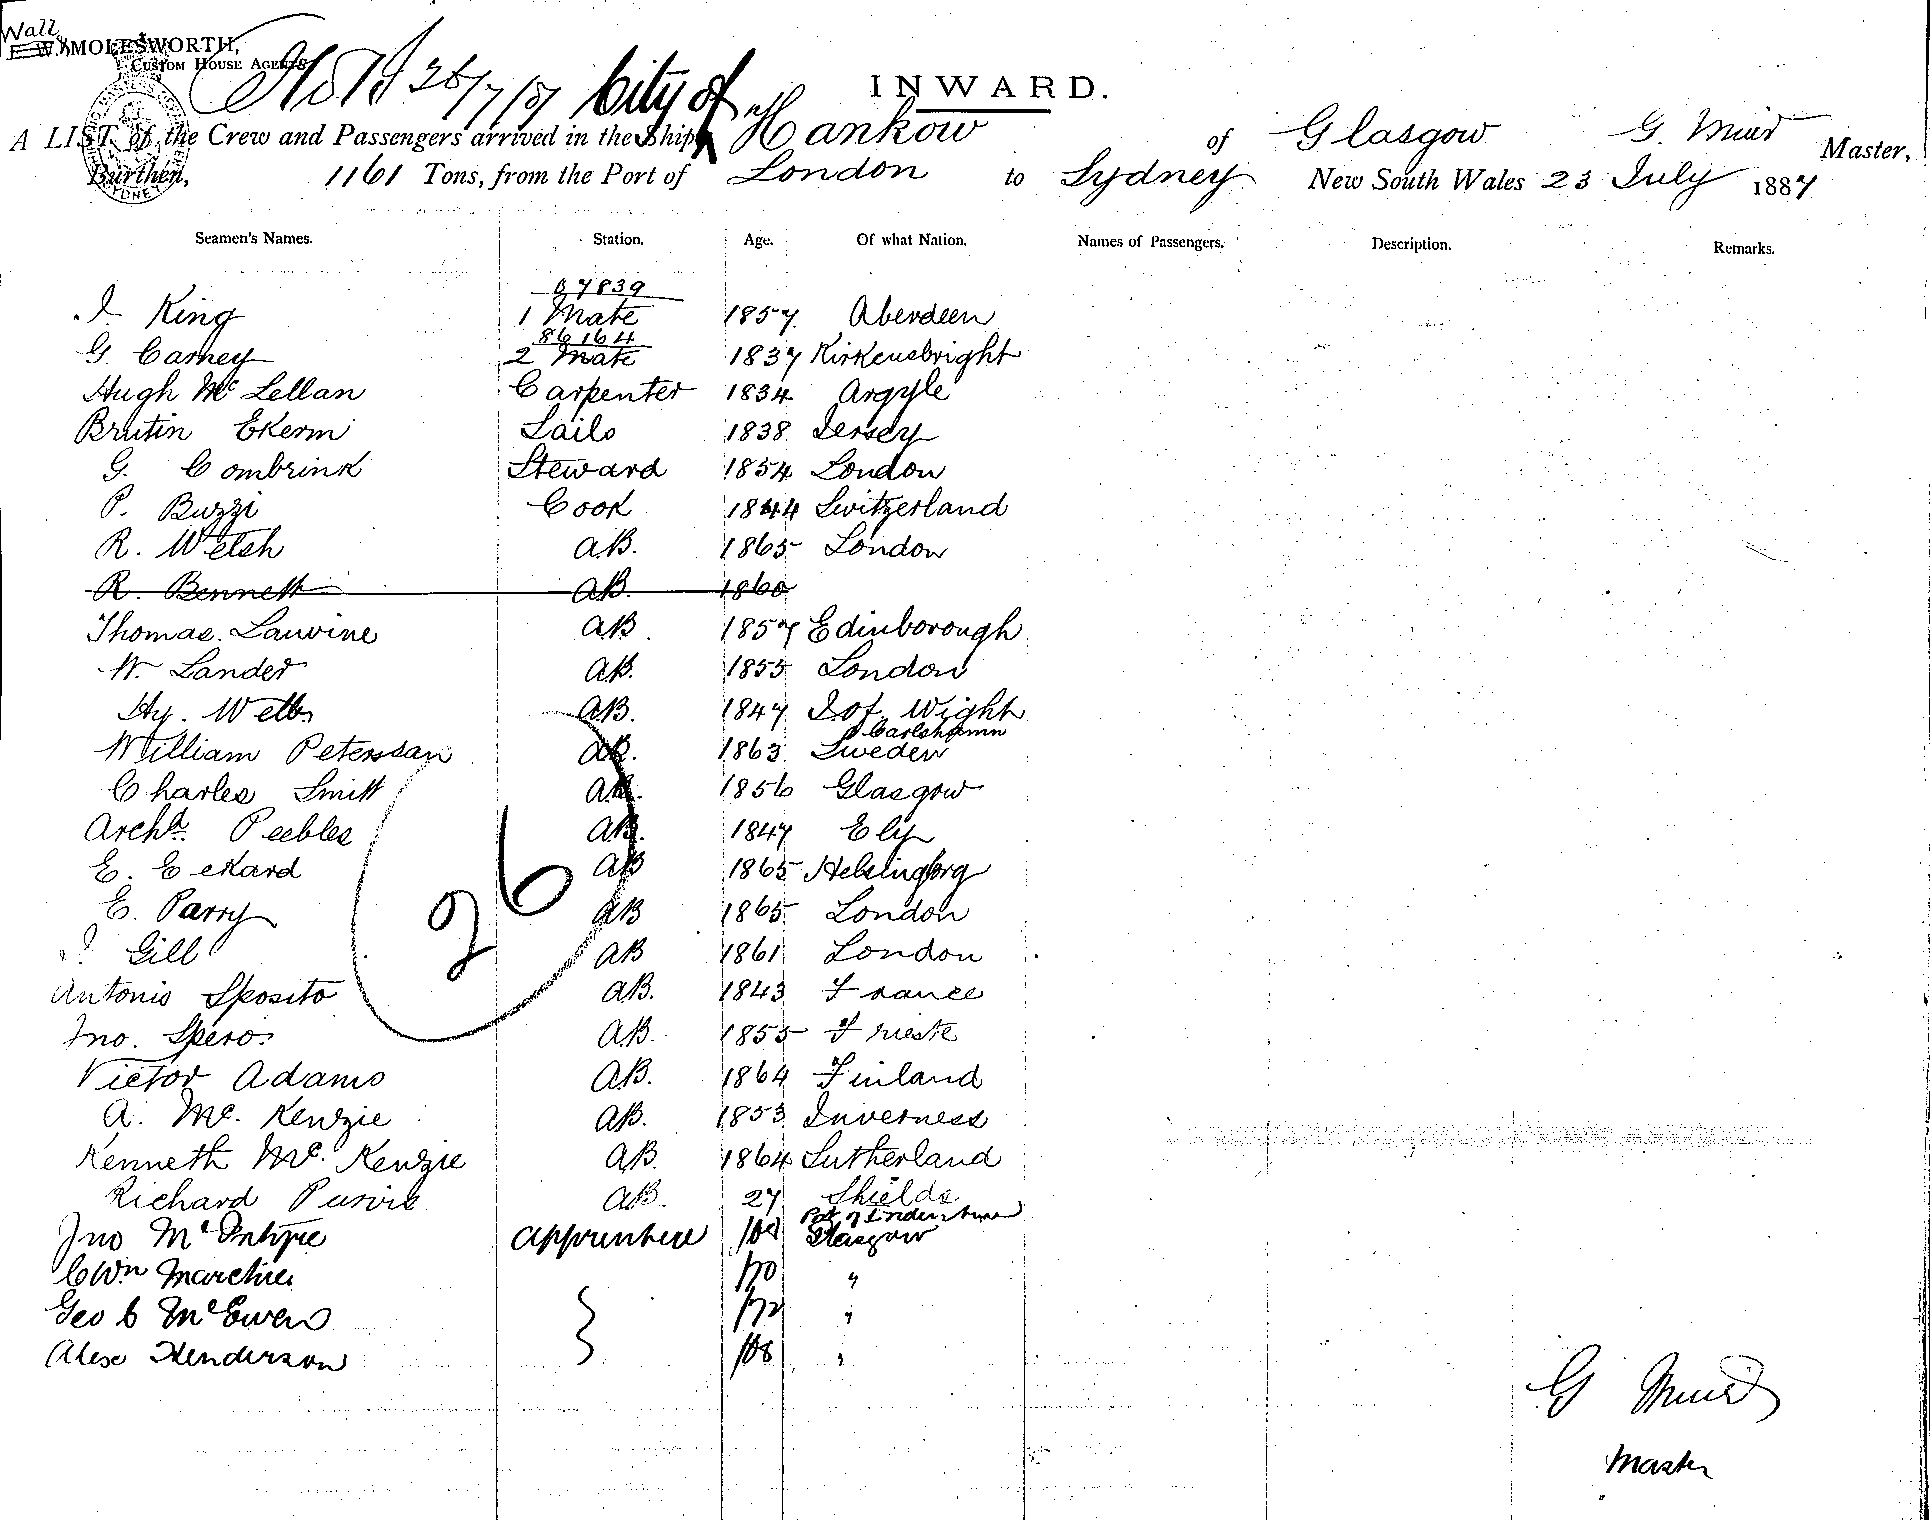 Wall
F. W. MOLESWORTH,
CUSTOM HOUSE AGENTS
26/7/87 City of
INWARD.
A LIST of the Crew and Passengers arrived in the Ship Hankow of Glasgow G. Muir Master,
Burthen, 1161 Tons, from the Port of London to Sydney New South Wales 23 July 1887
Seamen's Names. Station. Age. Of what Nation. Names of Passengers. Description. Remarks.
07839
J. King 1 Mate 1857 Aberdeen
86164
G. Carney 2 Mate 1837 Kirkeusbright
Hugh Mc Lellan Carpenter 1834 Argyle
Brutin Ekerm Sails 1838 Jersey
G. Combrink Steward 1854 London
P. Buzzi Cook 1844 Switzerland
R. Welsh AB. 1865 London
R. Bennett AB. 1860
Thomas Lauvine AB. 1857 Edinborough
W. Lander AB. 1855 London
Hy. Webb AB. 1847 I of Wight
Carlshamn
William Peterssan AB. 1863 Sweden
Charles Smitt AB. 1856 Glasgow
Archd. Peebles AB. 1847 Ely
E. Eckard AB 1865 Helsingborg
E. Parry AB 1865 London
J. Gill AB 1861 London
Antonis Sposito AB. 1843 France
Jno. Spero. AB. 1855 Trieste
Victor Adams AB. 1864 Finland
A. Mc. Kenzie AB. 1853 Inverness
Kenneth Mc. Kenzie AB. 1864 Sutherland
Richard Purvis AB. 27 Shields
Port of Indenture
Jno McIntyre apprentice Glasgow
C Wm Marchie /70 "
Geo C McEwen /72 "
Alex Henderson /68 "
26
G Muir
Master